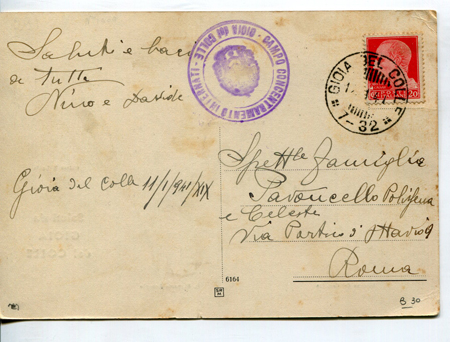 Saluti e baci
da Tutti
Nino e Davide
Gioia del Colle 11/1/941/XIX
CAMPO CONCENTRAMENTO INTERNATI - GIOIA del COLLE -
GIOIA DEL COLLE
7-32
20
Spett.le Famiglia
Pavoncello Polissena
e Celeste
Via Portico d'Ottavia 9
Roma
6164
B 30